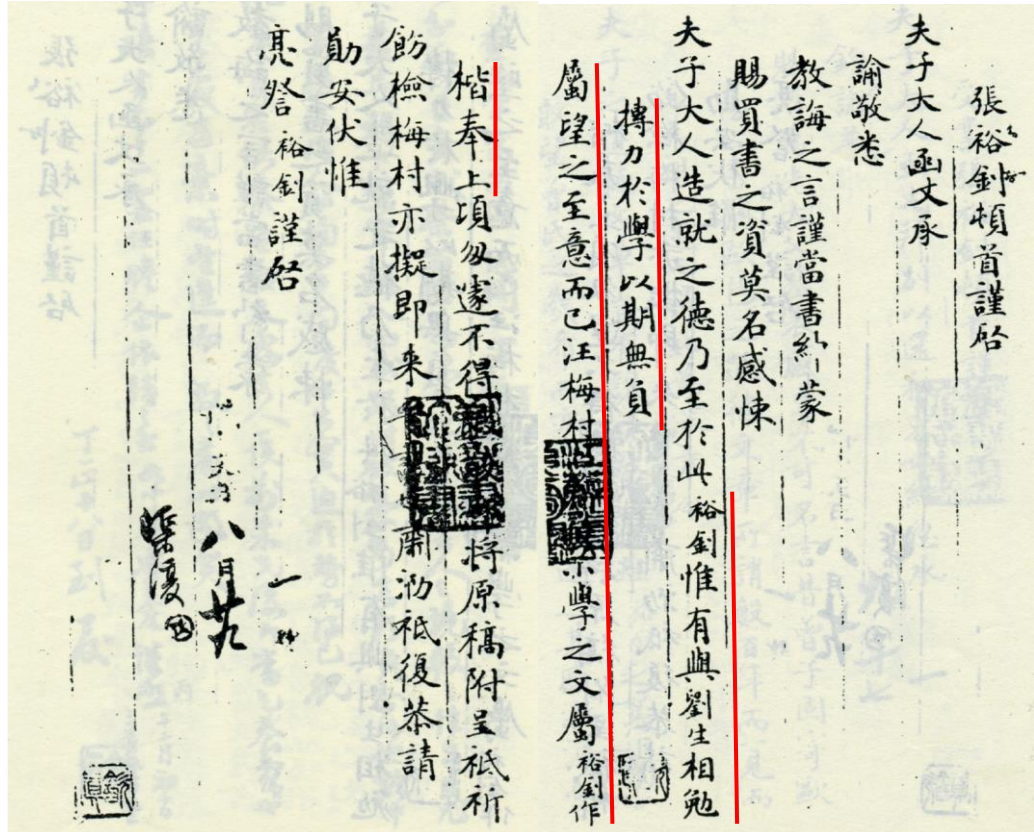 張裕釗頓首謹啓
夫子大人函丈承
諭敬悉
教誨之言謹當書紳蒙
賜買書之資莫名感悚
夫子大人造就之德乃至於此裕釗惟有與劉生相勉
摶力於學以期無負
屬望之至意而已汪梅村 示學之文屬裕釗作
楷奉上頃匆遽不得 將原稿附呈祇祈
飭檢梅村亦擬即来 肅泐祗復恭請
勛安伏惟
亮詧裕釗謹啓
八月廿九